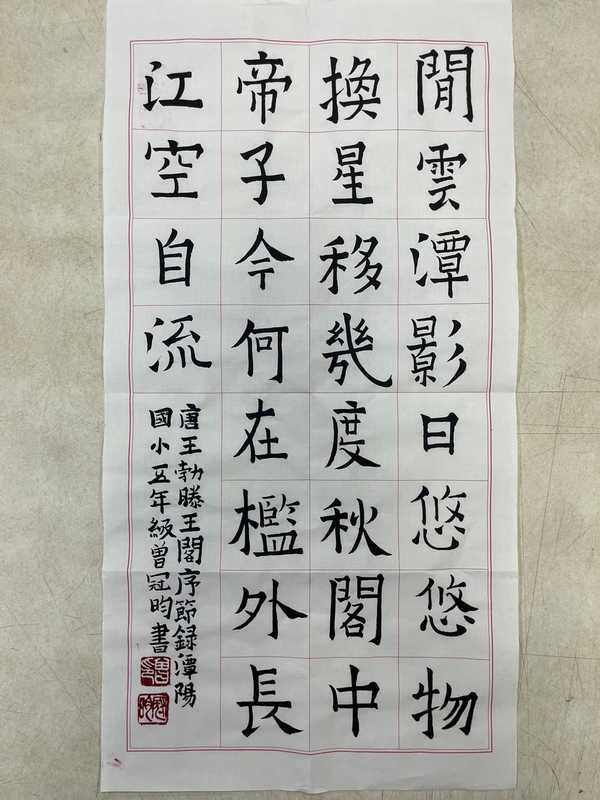 閒雲潭影日悠悠物
換星移幾度秋閣中
帝子今何在檻外長
江空自流
唐王勃滕王閣序節録潭陽
國小五年級曾冠昀書